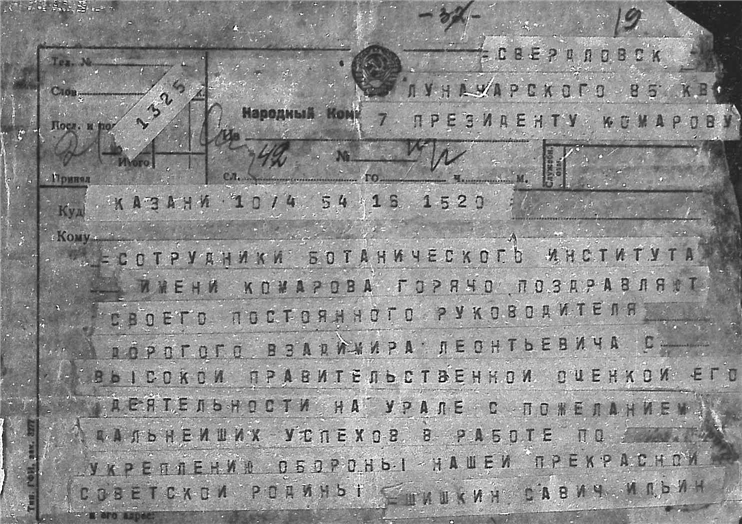 19
=СВЕРДЛОВСК
Тел. №
Слов
ЛУНАЧАРСКОГО 85 КВ
1325
Народный Ком
7 ПРЕЗИДЕНТУ КОМАРОВУ
Итого
42
№
Принял
сл.
го
ч.
м.
КАЗАНИ 10/4 54 16 1520
Куд
Кому
=СОТРУДНИКИ БОТАНИЧЕСКОГО ИНСТИТУТА
ИМЕНИ КОМАРОВА ГОРЯЧО ПОЗДРАВЛЯЮТ
СВОЕГО ПОСТОЯННОГО РУКОВОДИТЕЛЯ
ДОРОГОГО ВЗАДИМИРА ЛЕОНТЬЕВИЧА С
ВЫСОКОЙ ПРАВИТЕЛЬСТВЕННОЙ ОЦЕНКОЙ ЕГО
ДЕЯТЕЛЬНОСТИ НА УРАЛЕ С ПОЖЕЛАНИЕМ
ДАЛЬНЕЙШИХ УСПЕХОВ В РАБОТЕ ПО
УКРЕПЛЕНИЮ ОБОРОНЫ НАШЕЙ ПРЕКРАСНОЙ
СОВЕТСКОЙ РОДИНЫ =ШИШКИН САВИЧ ИЛЬИН
и его адрес: